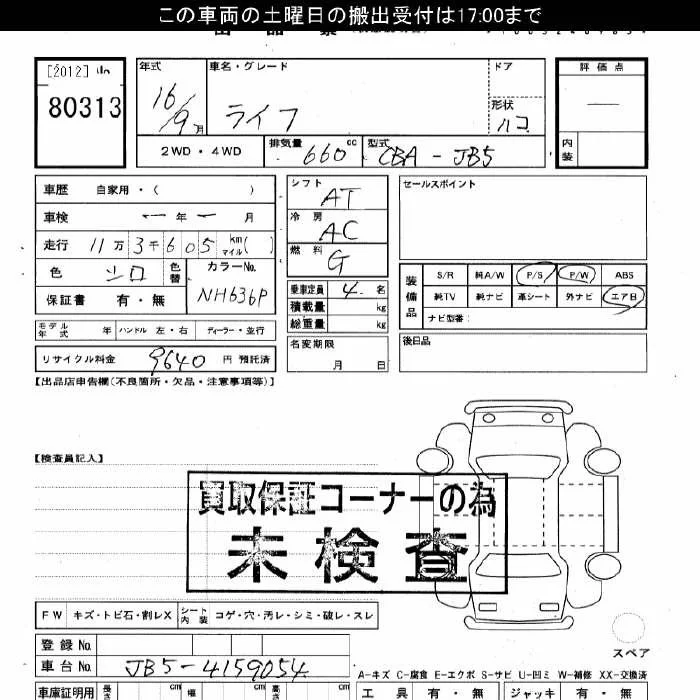 この車両の土曜日の搬出受付は17:00まで
[2012]
80313
年式 16/9月
車名・グレード ライフ
ドア
形状 ハコ
評価点 —
内装
2WD・4WD
排気量 660 cc
型式 CBA-JB5
車歴 自家用・( )
車検 ー年ー月
走行 11万3千605 km マイル( )
色 シロ 色替
カラーNo. NH636P
保証書 有・無
シフト AT
冷房 AC
燃料 G
乗車定員 4名
積載量 kg
総重量 kg
セールスポイント
装備品
S/R 純A/W P/S P/W ABS
純TV 純ナビ 革シート 外ナビ エアB
ナビ型番:
モデル年式 年 ハンドル 左・右 ディーラー・並行
リサイクル料金 9640 円 預託済
名変期限 月 日
後日品
【出品店申告欄(不良箇所・欠品・注意事項等)】
【検査員記入】
買取保証コーナーの為
未検査
FW キズ・トビ石・割レX シート内装 コゲ・穴・汚レ・シミ・破レ・スレ
スペア
登録No.
車台No. JB5-4159054
A-キズ C-腐食 E-エクボ S-サビ U-凹ミ W-補修 XX-交換済
車庫証明用 長さ cm 幅 cm 高さ cm
工具 有・無 ジャッキ 有・無